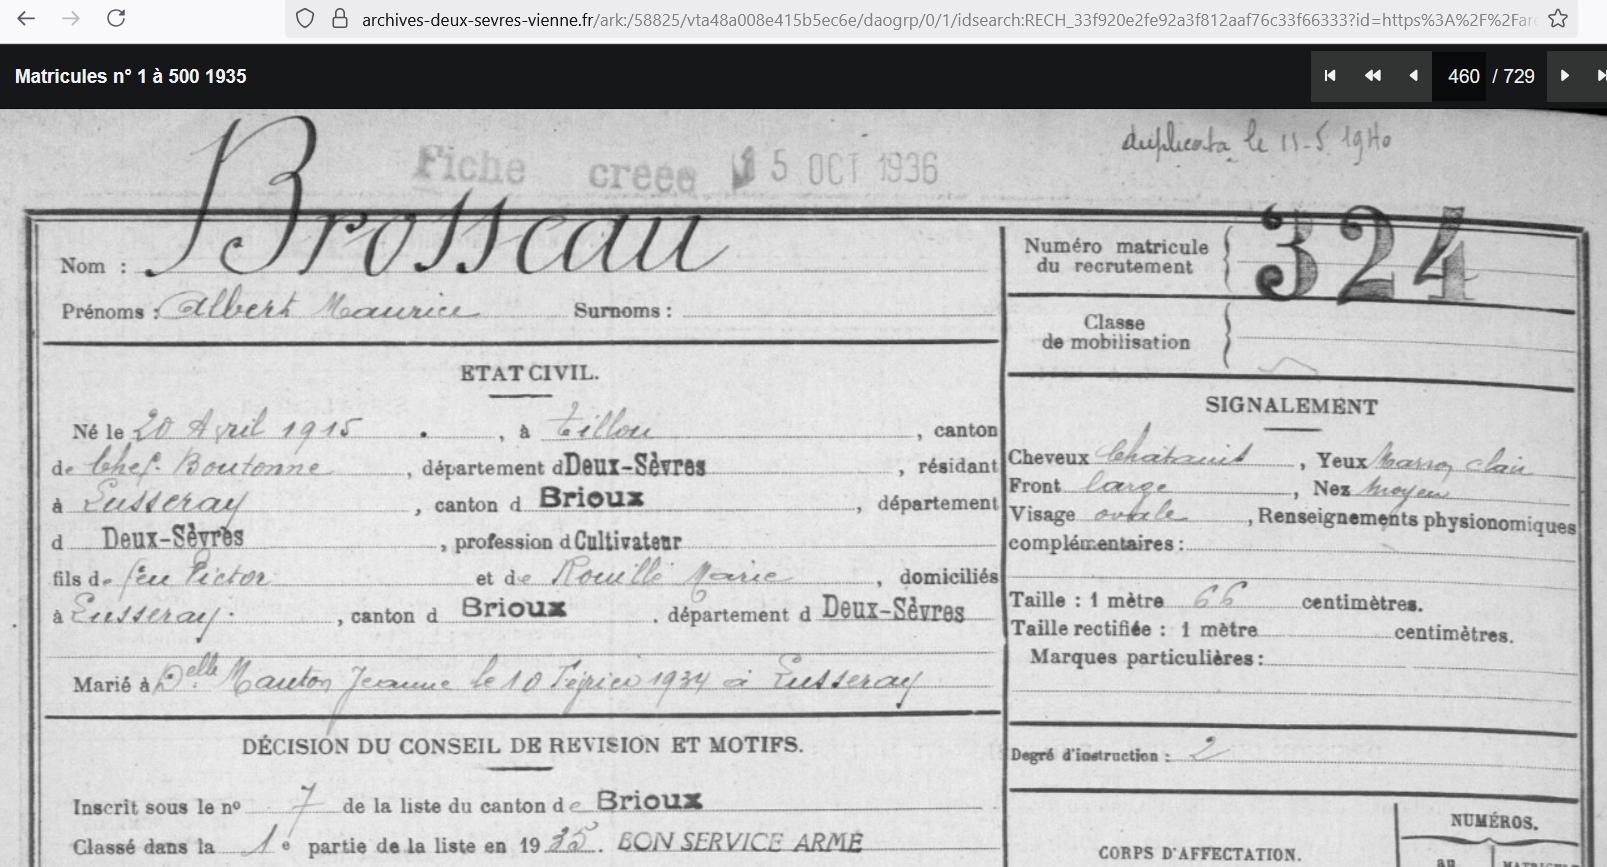 archives-deux-sevres-vienne.fr/ark:/58825/vta48a008e415b5ec6e/daogrp/0/1/idsearch:RECH_33f920e2fe92a3f812aaf76c33f66333?id=https%3A%2F%2Far
Matricules n° 1 à 500 1935
460 / 729
duplicata le 11-5 1940
Fiche creee 15 OCT 1936
Nom : Brosseau
Prénoms : Albert Maurice Surnoms :
Numéro matricule du recrutement 324
Classe de mobilisation
ETAT CIVIL.
Né le 20 Avril 1915, à Tillou, canton
de Chef-Boutonne, département d Deux-Sèvres, résidant
à Lusseray, canton d Brioux, département
d Deux-Sèvres, profession d Cultivateur
fils de feu Victor et de Rouillé Marie, domiciliés
à Lusseray, canton d Brioux, département d Deux-Sèvres
Marié à Delle Nauton Jeanne le 10 Février 1934 à Lusseray
SIGNALEMENT
Cheveux Chatains, Yeux Marron clair
Front large, Nez moyen
Visage ovale, Renseignements physionomiques
complémentaires :
Taille : 1 mètre 66 centimètres.
Taille rectifiée : 1 mètre centimètres.
Marques particulières :
Degré d'instruction : 2
DÉCISION DU CONSEIL DE REVISION ET MOTIFS.
Inscrit sous le n° 7 de la liste du canton de Brioux
Classé dans la 1e partie de la liste en 1935. BON SERVICE ARMÉ
NUMÉROS.
CORPS D'AFFECTATION.
au